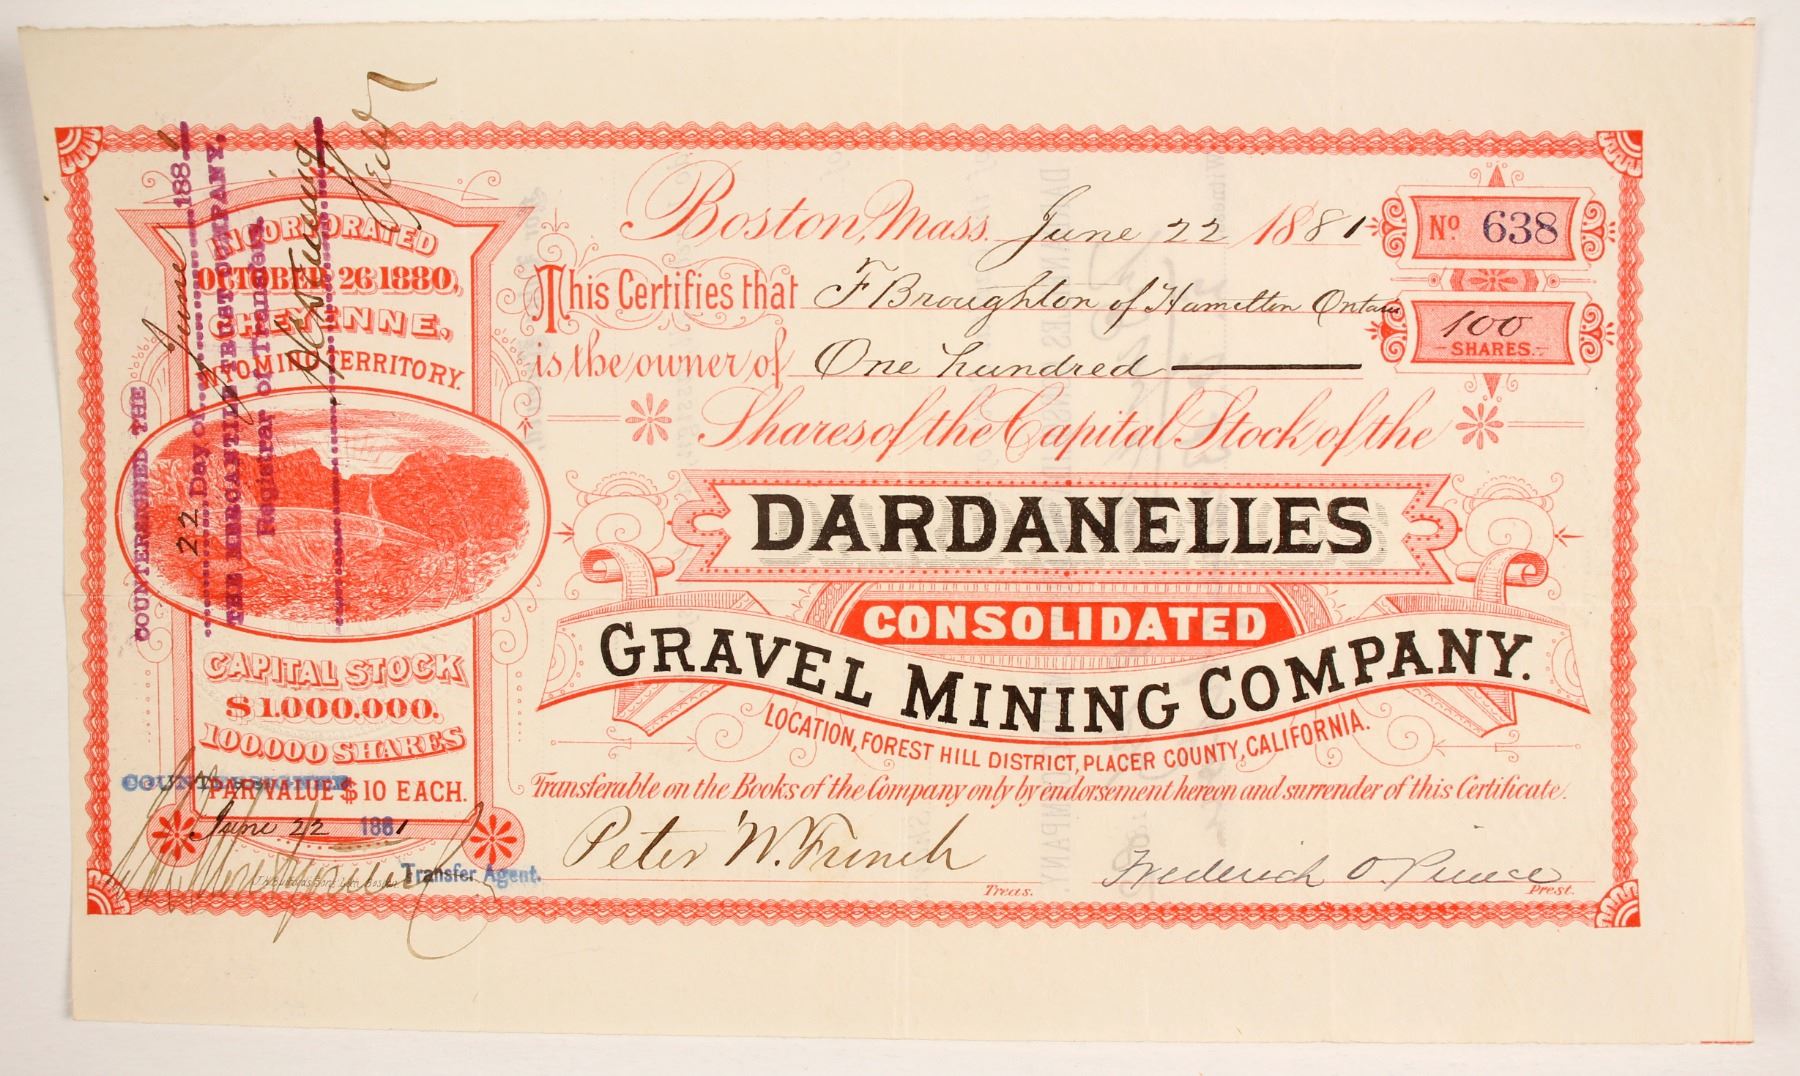 Boston, Mass. June 22 1881
No. 638
This Certifies that F Broughton of Hamilton Ontario
100 SHARES.
is the owner of One hundred
Shares of the Capital Stock of the
DARDANELLES
CONSOLIDATED
GRAVEL MINING COMPANY.
LOCATION, FOREST HILL DISTRICT, PLACER COUNTY, CALIFORNIA.
Transferable on the Books of the Company only by endorsement hereon and surrender of this Certificate.
Peter W. French
Treas.
Frederick O. Prince
Prest.
INCORPORATED
OCTOBER 26 1880,
CHEYENNE,
WYOMING TERRITORY.
CAPITAL STOCK
$1.000.000.
100.000 SHARES
PAR VALUE $10 EACH.
COUNTERSIGNED
June 22 1881
Transfer Agent.
COUNTERSIGNED THE
22 Day of June 1881
THE MERCANTILE TRUST COMPANY,
Registrar of Transfers.